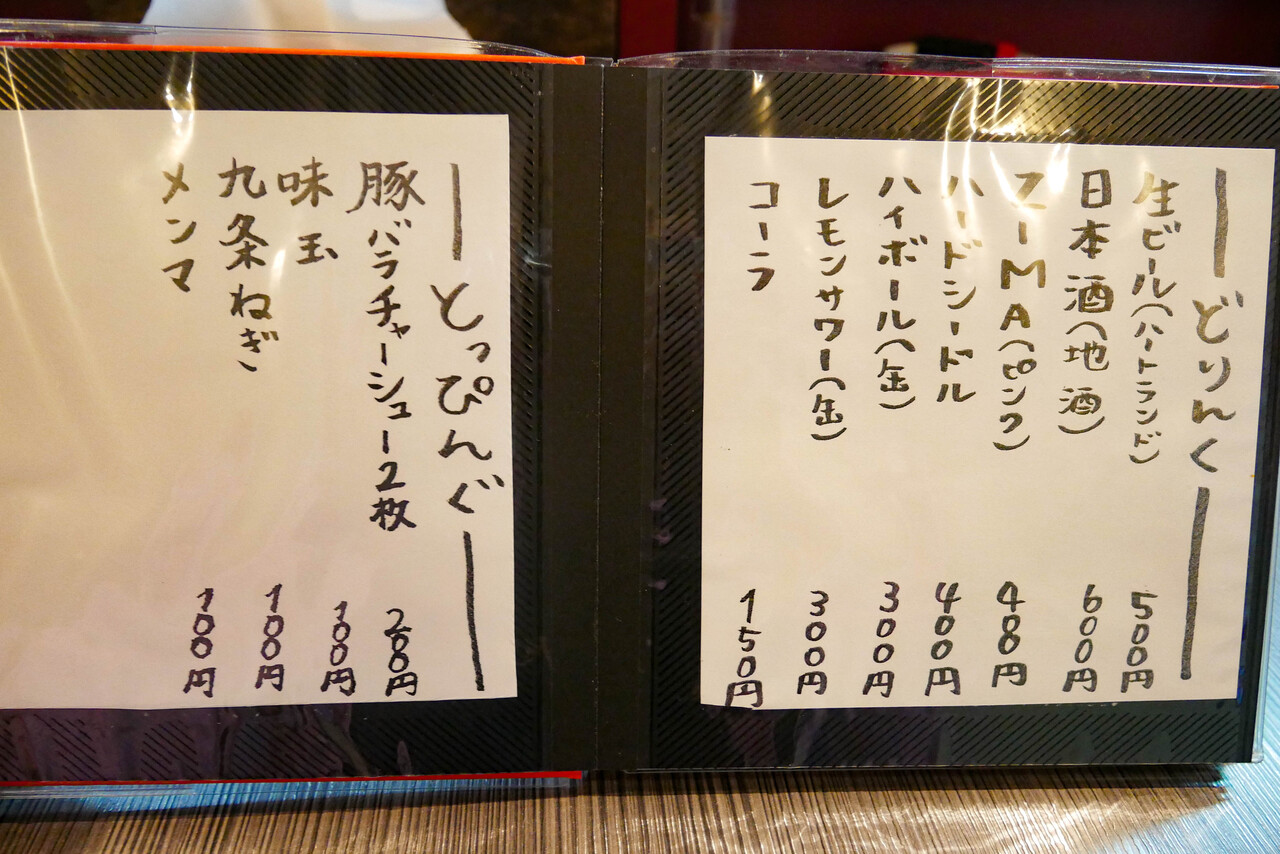 どりんく
生ビール(ハートランド) 500円
日本酒(地酒) 600円
ズーMA(ピンク) 400円
ハードシードル 400円
ハイボール(缶) 300円
レモンサワー(缶) 300円
コーラ 150円
とっぴんぐ
豚バラチャーシュー2枚 200円
味玉 100円
九条ねぎ 100円
メンマ 100円